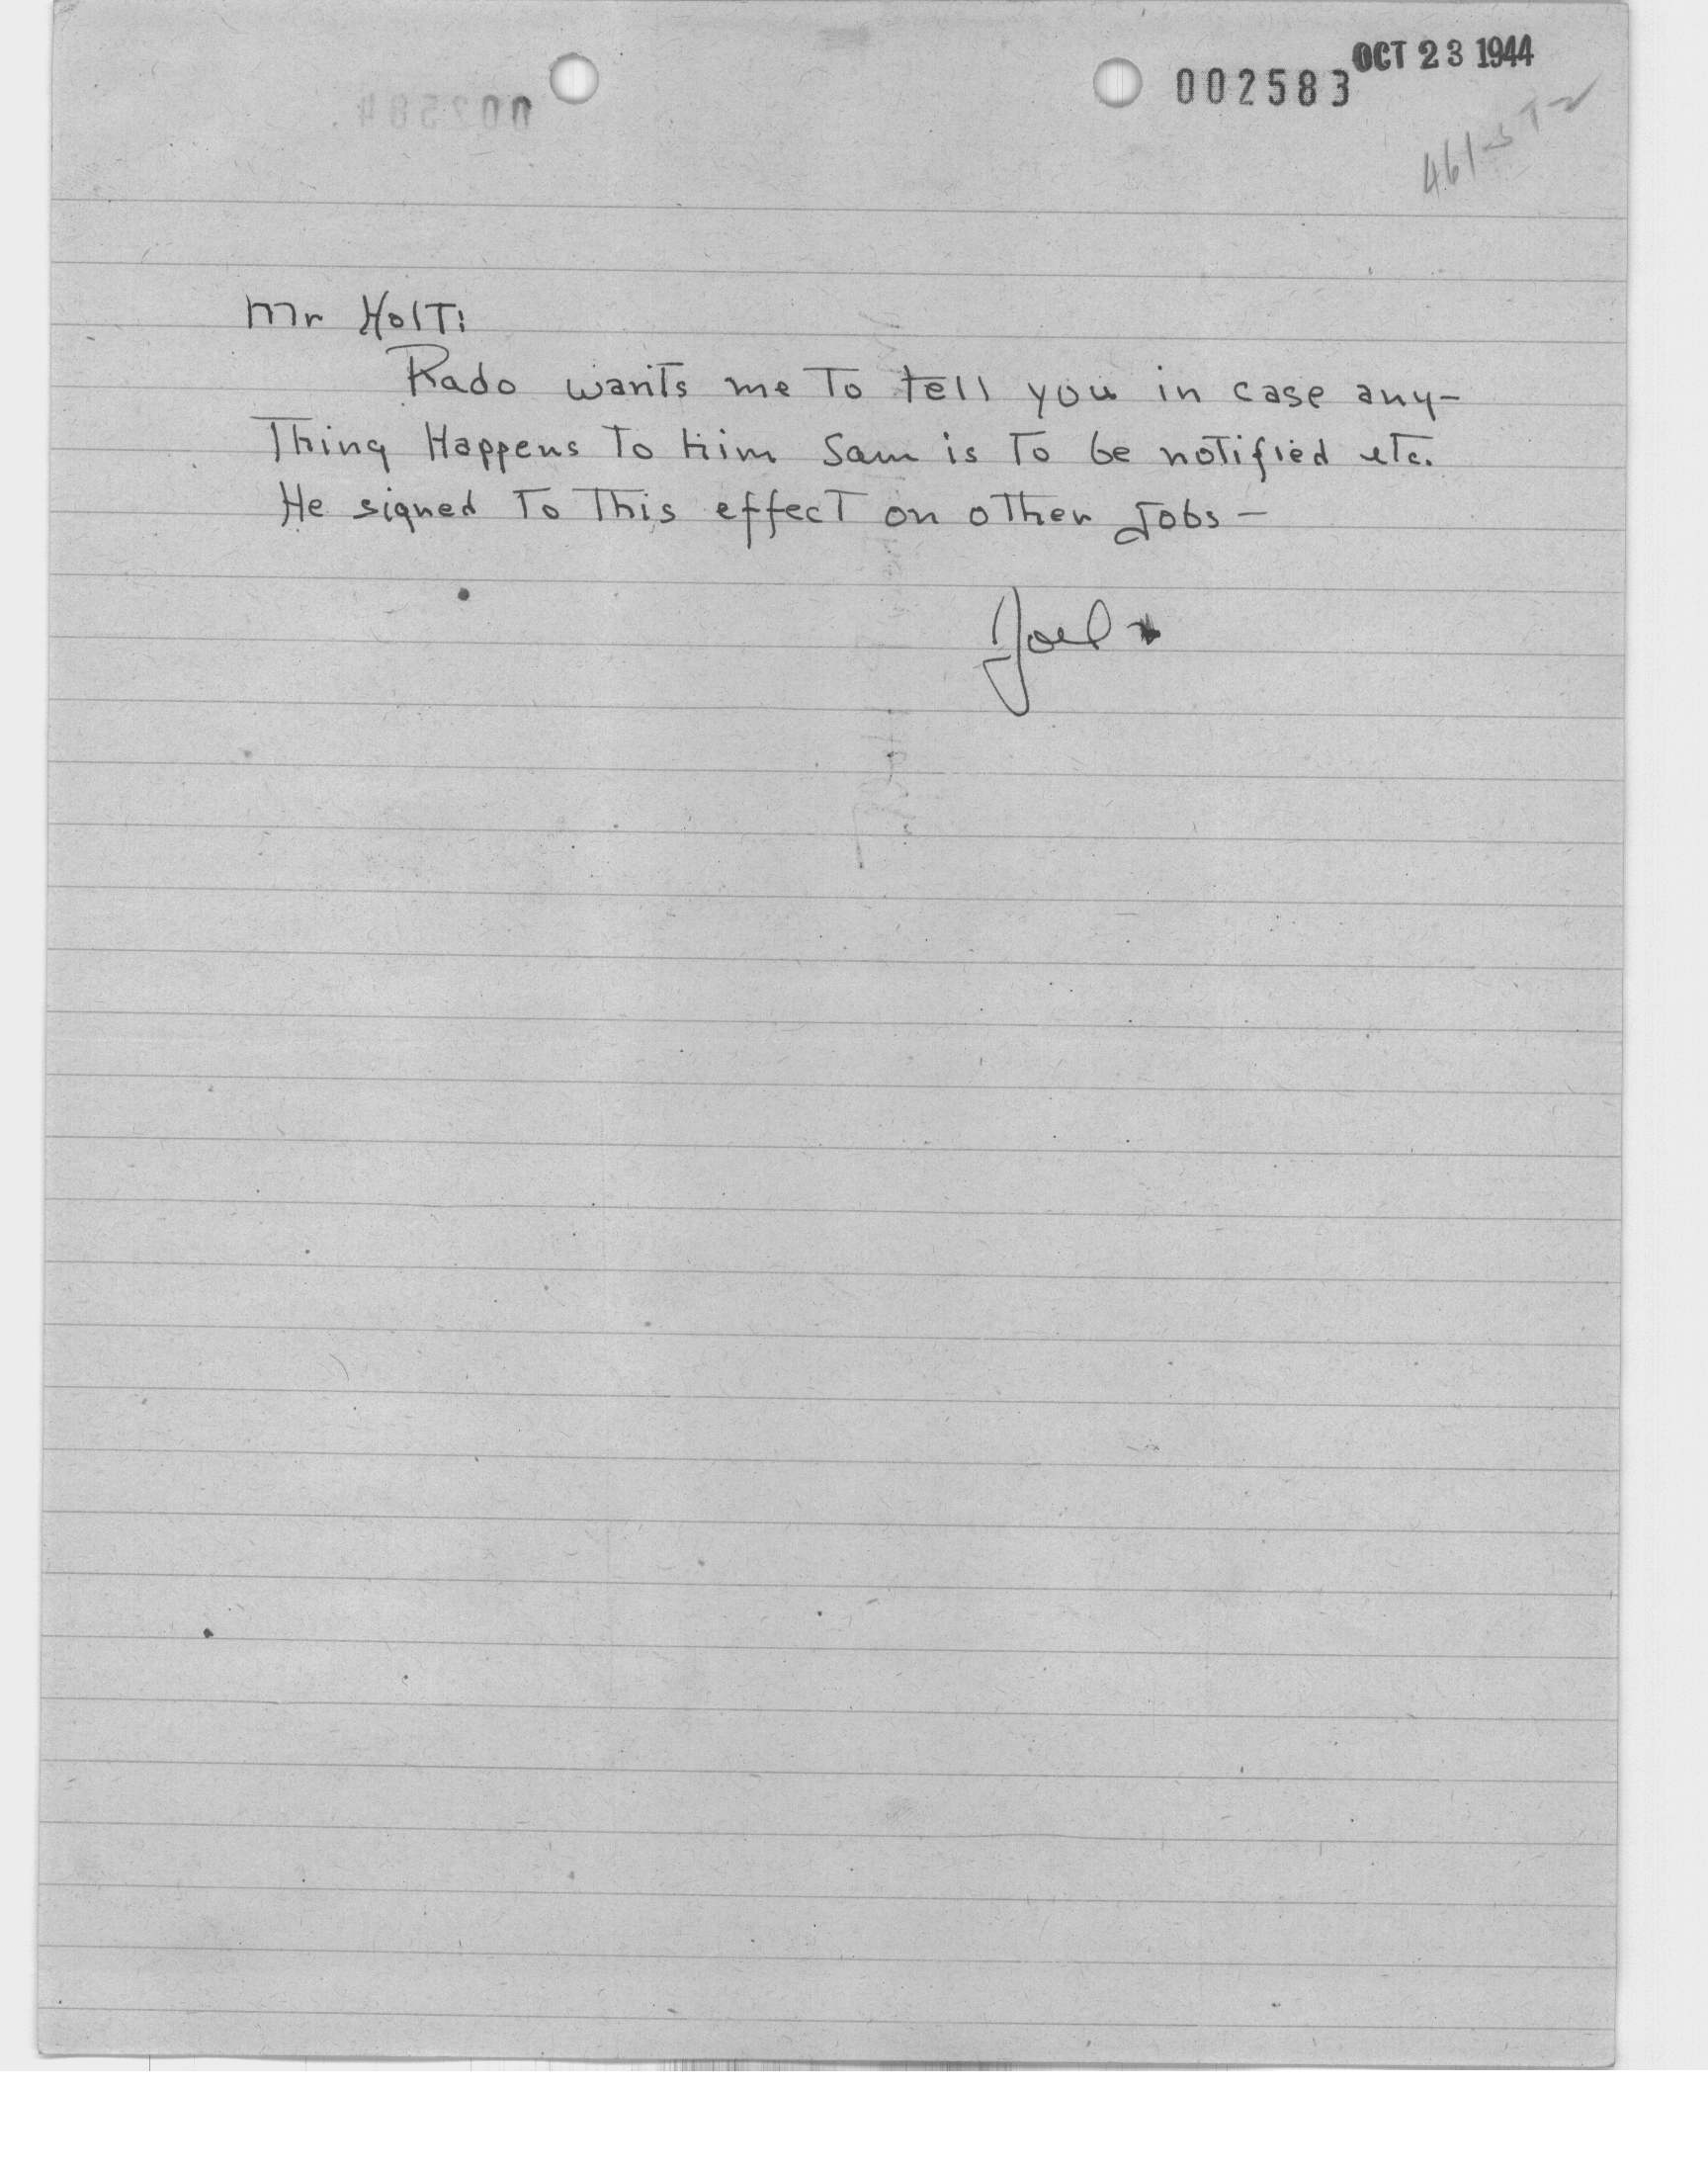 OCT 23 1944
002583
Mr Holt:
Rado wants me To tell you in case any-
Thing Happens To him Sam is To be notified etc.
He signed To This effect on other Jobs —
Joel